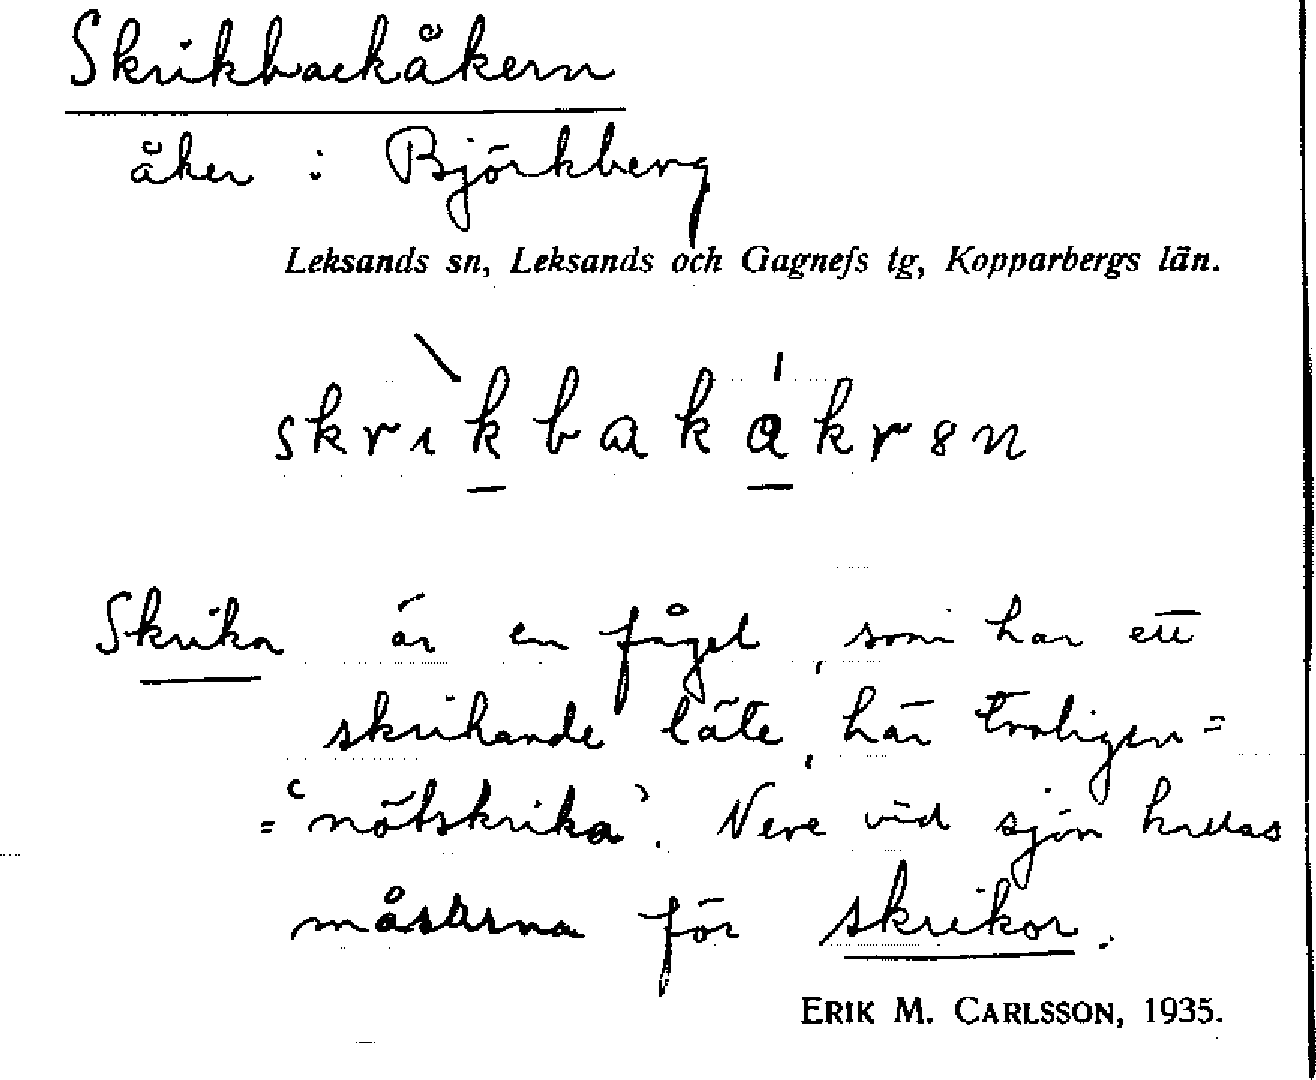 Skrikbackåkern
åker i Björkberg
Leksands sn, Leksands och Gagnefs tg, Kopparbergs län.
skrikbakakrən
Skrika är en fågel, som har ett
skrikande läte, här troligen =
= 'nötskrika'. Nere vid sjön kallas
måsarna för skrikor.
ERIK M. CARLSSON, 1935.